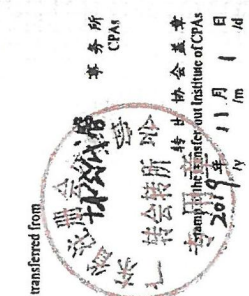 transferred from
事务所
CPAs
转会转所
转出协会盖章
Stamp of the transfer-out Institute of CPAs
2019年 11月 1日
/y /m /d